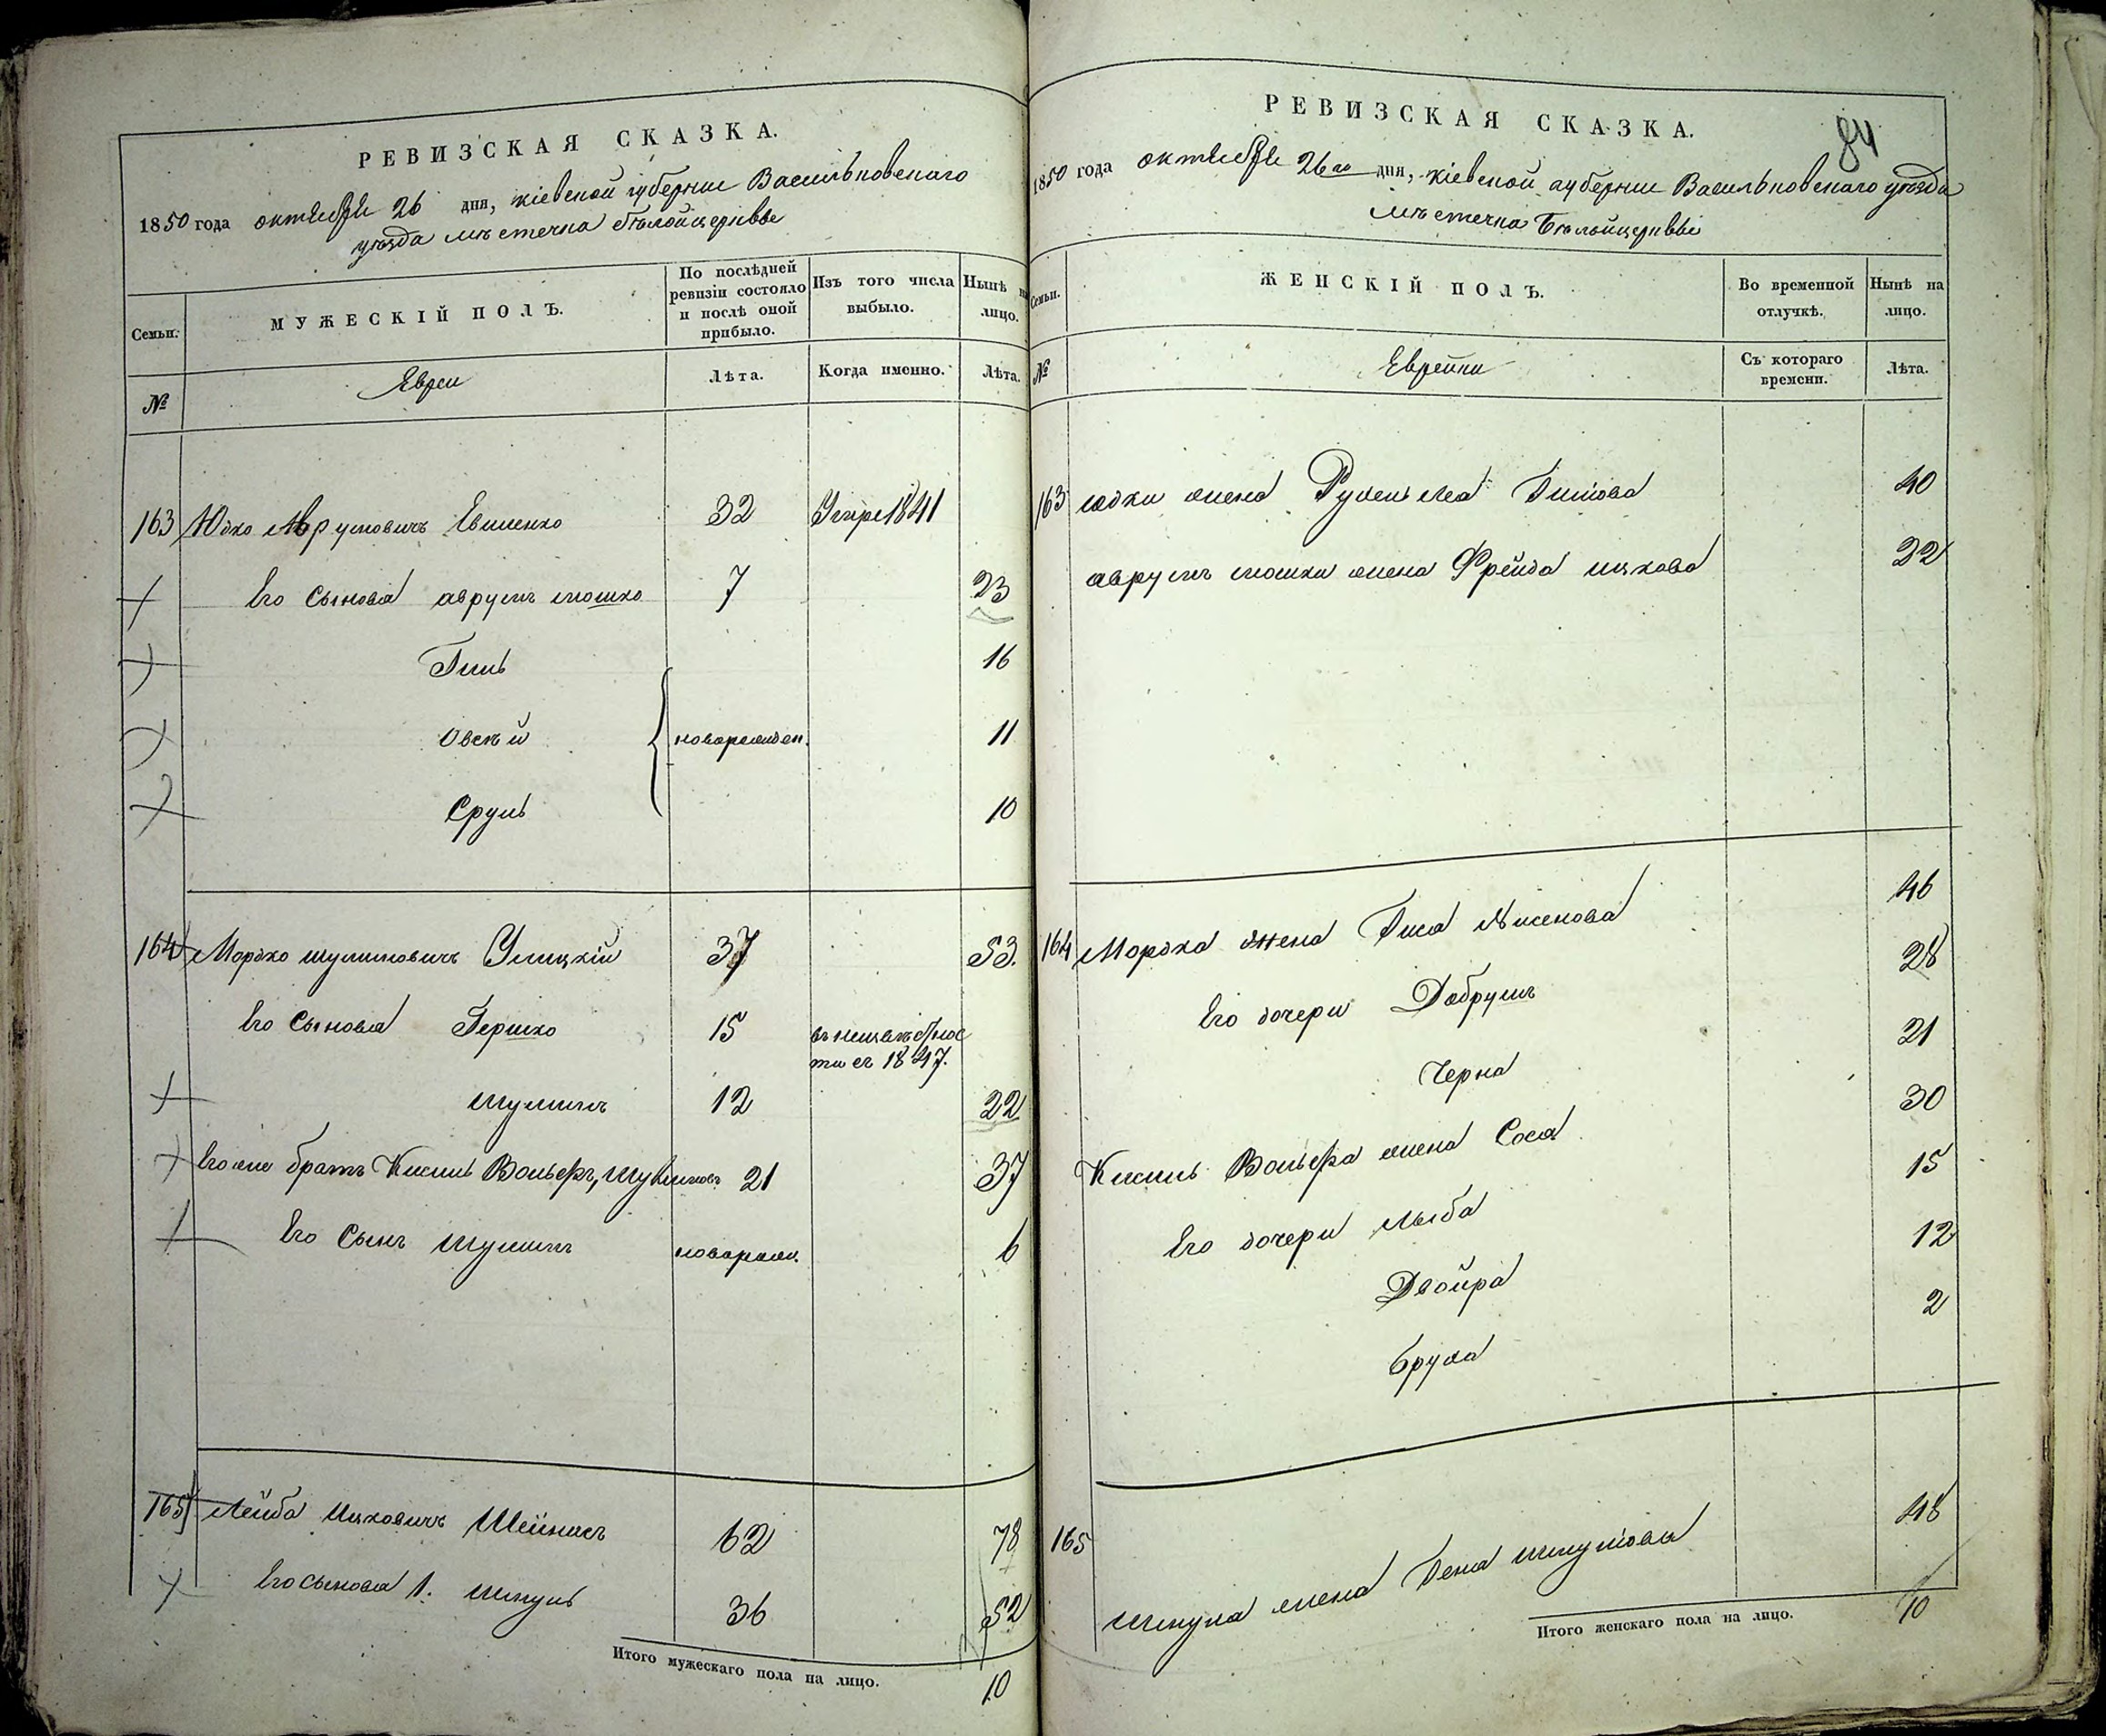 РЕВИЗСКАЯ СКАЗКА.
1850 года октября 26 дня, Кіевской губерніи Васильковского
уѣзда мѣстечка Бѣлойцеркви
Семьи.
МУЖЕСКІЙ ПОЛЪ.
По послѣдней ревизіи состояло и послѣ оной прибыло.
Изъ того числа выбыло.
Нынѣ на лицо.
№
Евреи
Лѣта.
Когда именно.
Лѣта.
163 Юдко Аврумовичъ 32 Умре 1841
Его сыновья Аврумъ Мошко 7 23
Гиль 16
Овсѣй новорожден. 11
Сруль 10
164 Мордко Шулимовичъ Улицкій 37 53.
Его сыновья Гершко 15 въ неизвѣстнос
ти съ 1847.
Шулимъ 12 22
Его же братъ Кисиль Вольфъ, Шулимов. 21 37
Его сынъ Шулимъ новорожд. 6
165 Лейба Ицковичъ 62 78
Его сыновья 1. Шмуль 36 52
Итого мужескаго пола на лицо. 10
РЕВИЗСКАЯ СКАЗКА.
84
1850 года октября 26го дня, Кіевской губерніи Васильковского уѣзда
мѣстечка Бѣлойцеркви
Семьи.
ЖЕНСКІЙ ПОЛЪ.
Во временной отлучкѣ.
Нынѣ на лицо.
№
Еврейки
Съ котораго времени.
Лѣта.
163 Юдки жена 40
Аврумъ Мошки жена Фрейда Ицкова 22
164 Мордка жена 46
Его дочери Добрушъ 28
Черна 21
Кисиль Вольфа жена Сося 30
Его дочери Лыба 15
Двойра 12
Бруха 2
165 Шмуля жена 48
Итого женскаго пола на лицо. 10